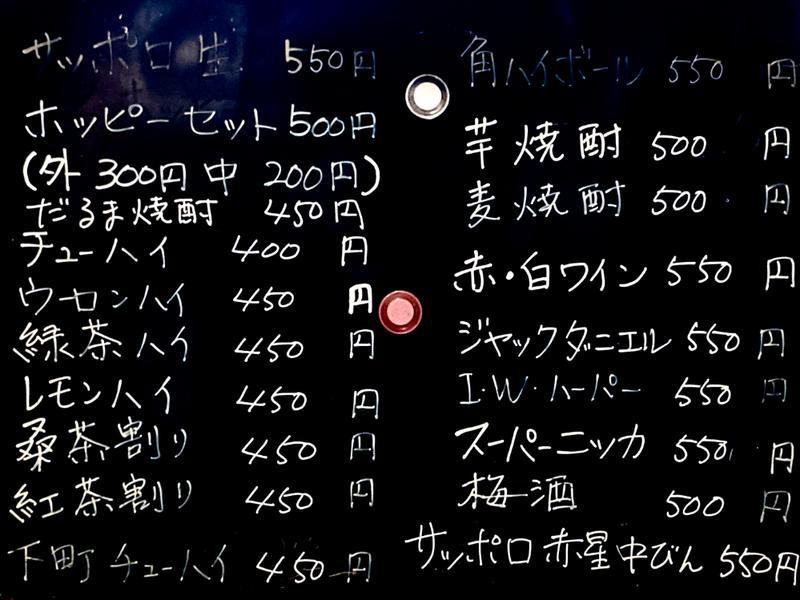 サッポロ生 550円
ホッピーセット 500円
(外 300円 中 200円)
だるま焼酎 450円
チューハイ 400円
ウーロンハイ 450円
緑茶ハイ 450円
レモンハイ 450円
桑茶割り 450円
紅茶割り 450円
下町チューハイ 450円
角ハイボール 550円
芋焼酎 500円
麦焼酎 500円
赤・白ワイン 550円
ジャックダニエル 550円
I・W・ハーパー 550円
スーパーニッカ 550円
梅酒 500円
サッポロ赤星中びん 550円